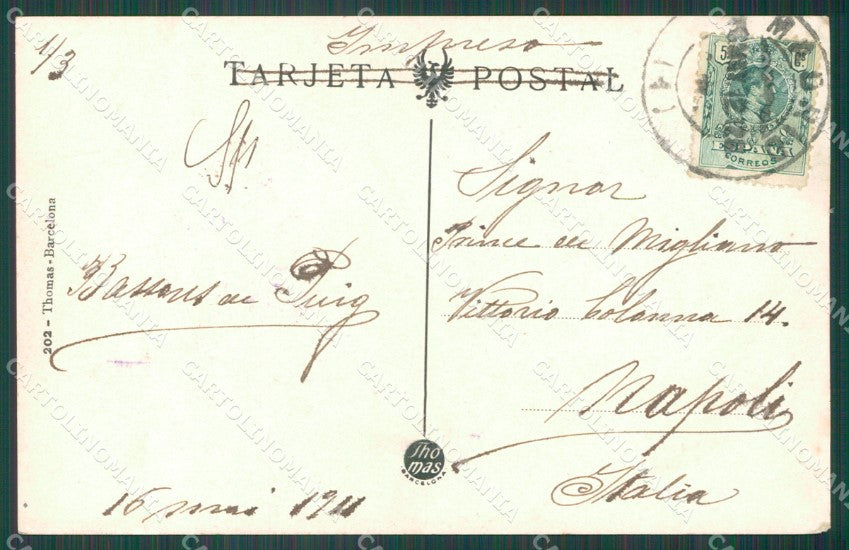 1/3
Impreso
TARJETA POSTAL
5 Cs
ESPAÑA
CORREOS
Signor
Prince de Migliano
Vittorio Colonna 14.
Napoli
Italia
Bassous de Puig
16 mai 1911
202 - Thomas-Barcelona
Thomas
BARCELONA
CARTOLINOMANIA